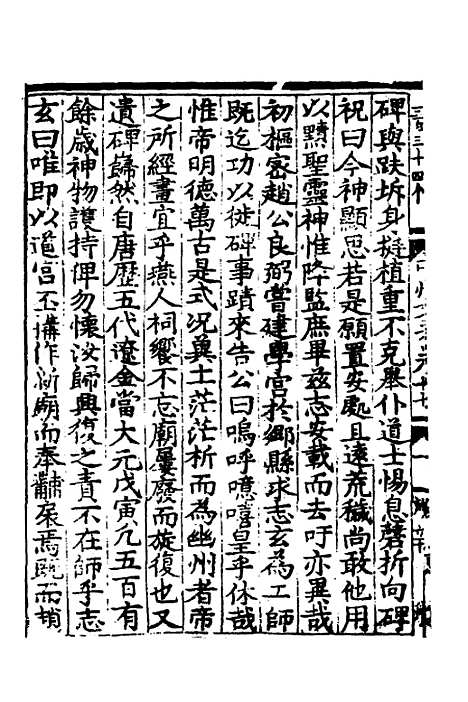 碑與趺坼身挺植重不克舉仆道士惕息磬折向碑
祝曰今神顯思若是願置安處且遠荒穢尚敢他用
以黷聖靈神惟降監庶畢茲志安載而去吁亦異哉
初樞密趙公良弼嘗建學宮於鄉縣求志玄為工師
既迄功以徙碑事蹟來告公曰嗚呼噫嘻皇乎休哉
惟帝明德萬古是式況冀土茫茫析而為幽州者帝
之所經畫宜乎燕人祠饗不忘廟屢廢而旋復也又
遺碑巋然自唐歷五代遼金當大元戊寅凡五百有
餘歲神物護持俾勿懷汝歸興復之責不在師乎志
玄曰唯即以道宮丕搆作新廟而奉黼扆焉既而趙